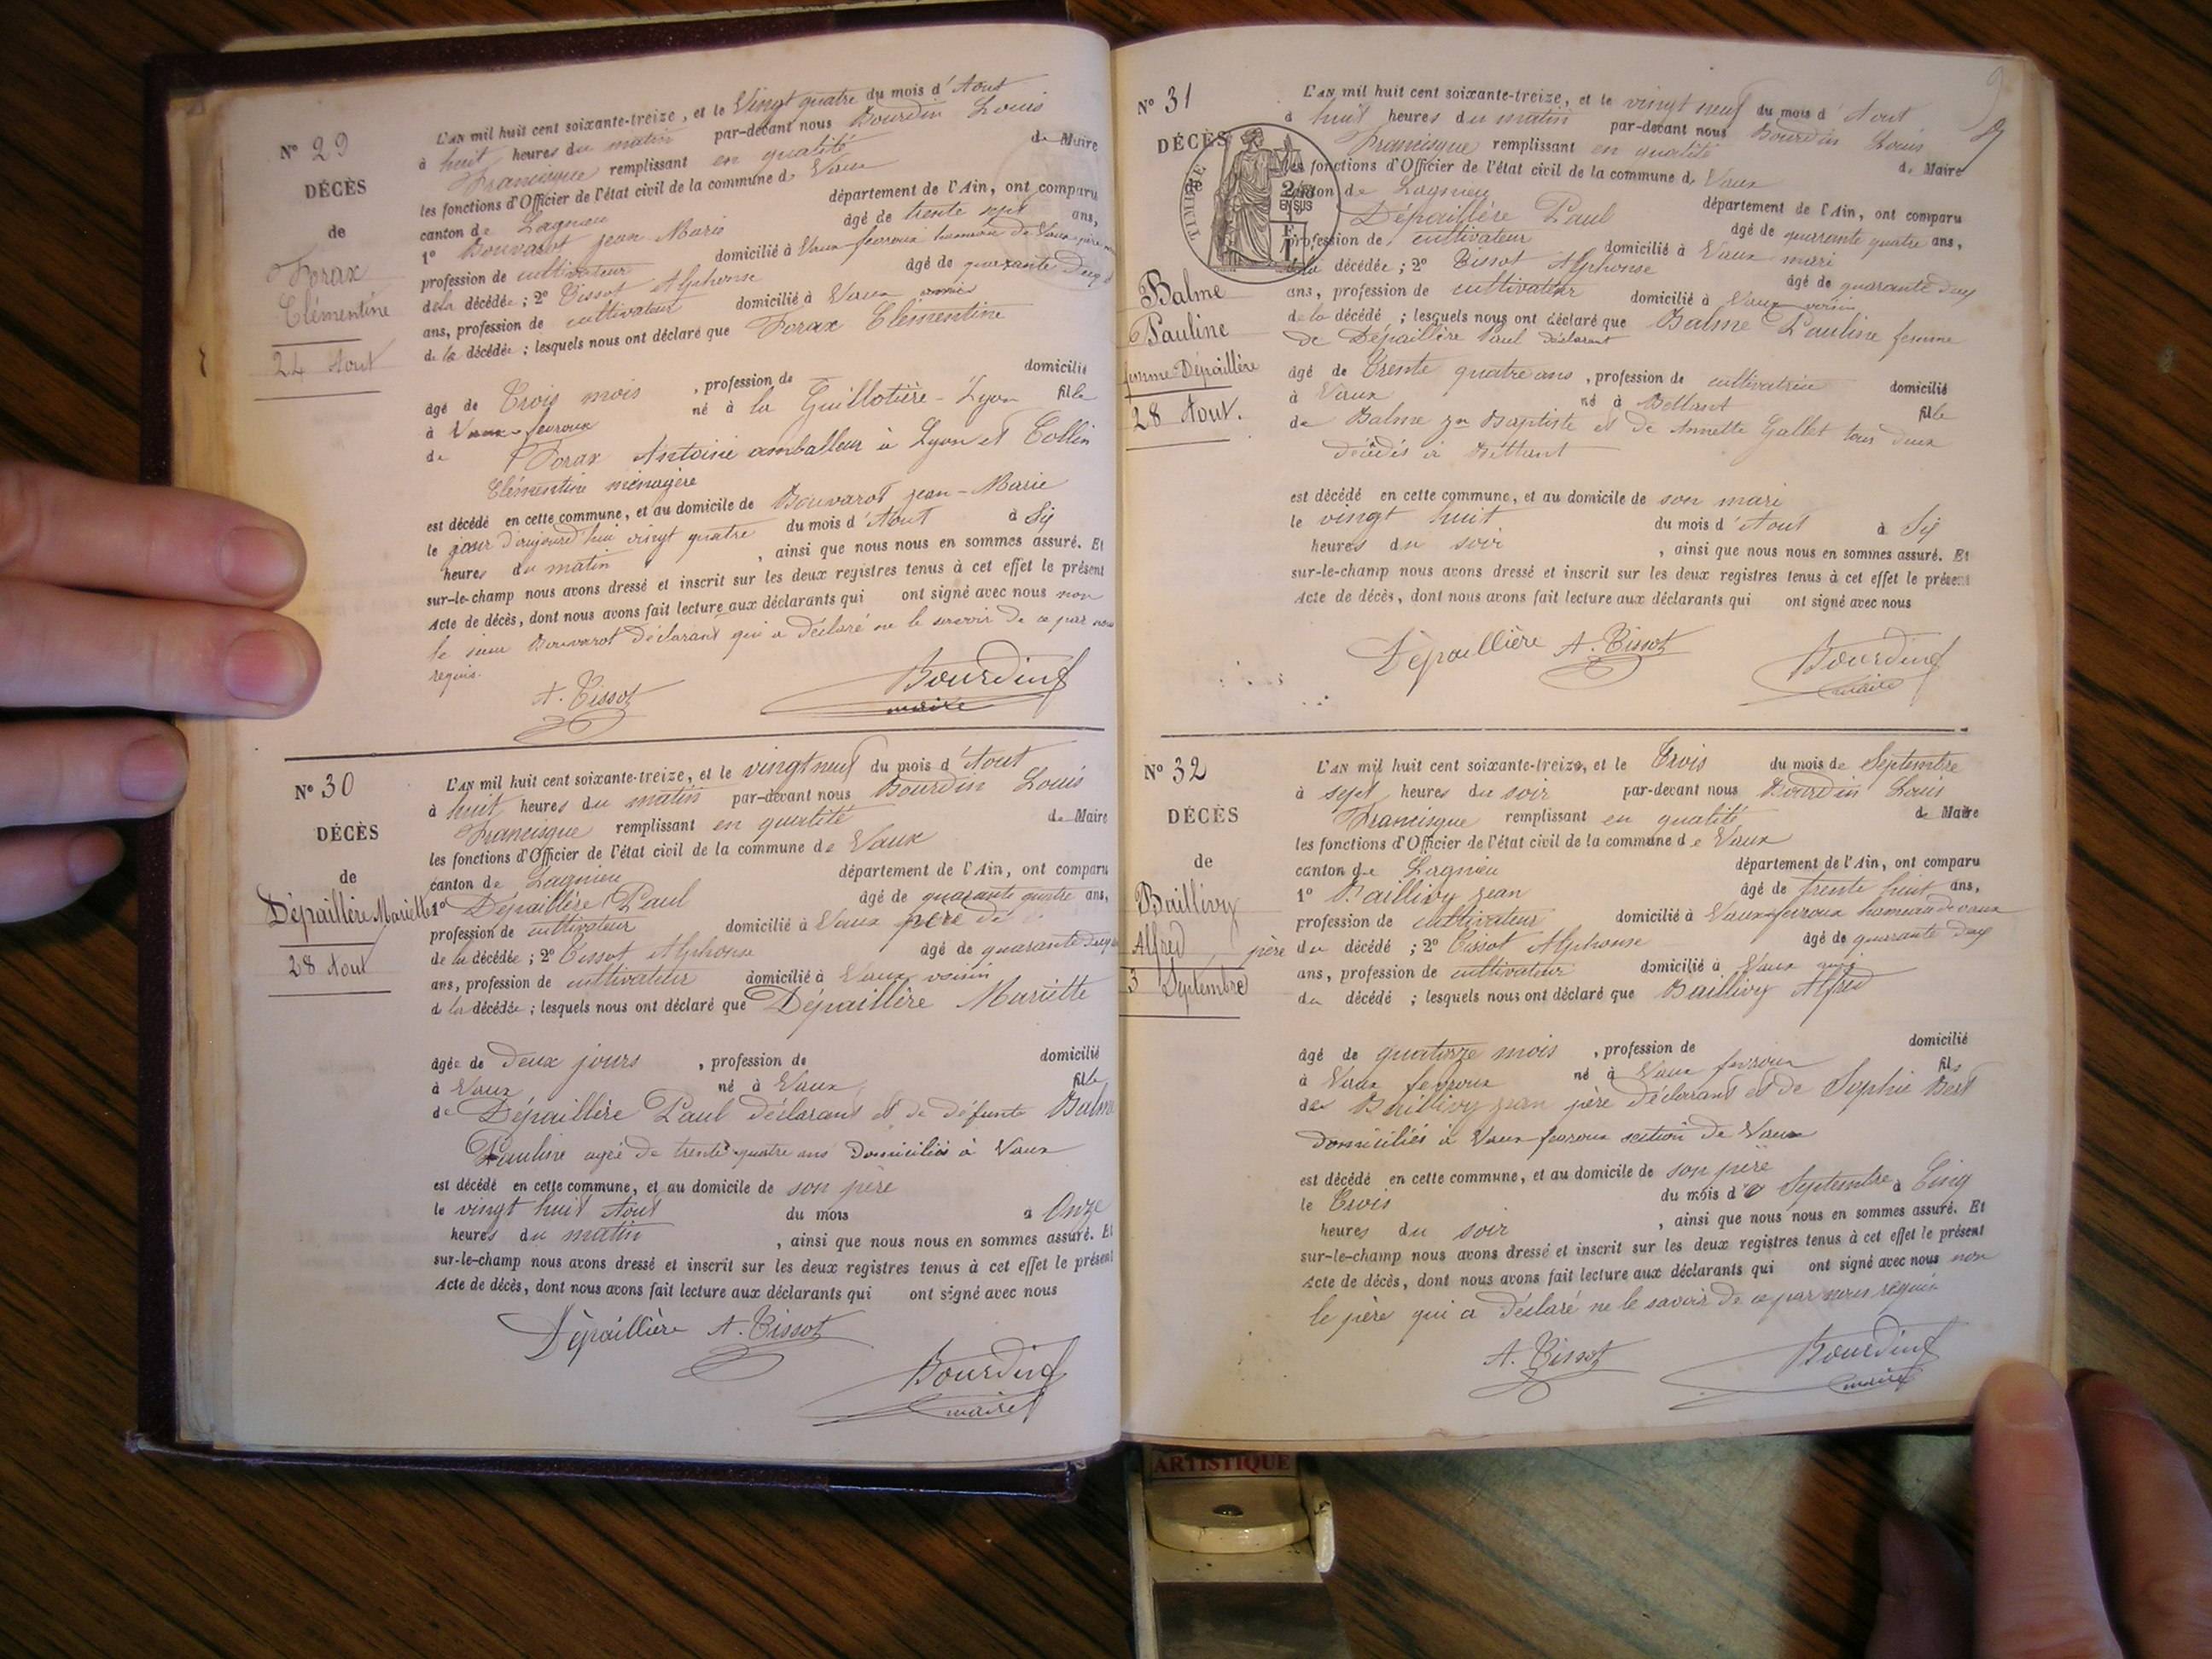 N° 29
DÉCÈS
de
Forax
Clémentine
24 Aout
L'AN mil huit cent soixante-treize, et le Vingt quatre du mois d'Aout
à huit heures du matin par-devant nous Bourdin Louis
Francisque remplissant en qualité de Maire
les fonctions d'Officier de l'état civil de la commune de Vaux
canton de Lagnieu département de l'Ain, ont comparu
1° Bouvarot jean Marie âgé de trente sept ans,
profession de cultivateur domicilié à Vaux fevroux hameau de Vaux
de la décédée ; 2° Tissot Alphonse âgé de quarante deux
ans, profession de cultivateur domicilié à Vaux amis
de la décédée ; lesquels nous ont déclaré que Forax Clémentine
âgé de Trois mois , profession de domicilié
à Vaux-fevroux né à la Guillotière-Lyon fille
de Forax Antoine amballeur à Lyon et Collin
Clémentine ménagère
est décédé en cette commune, et au domicile de Bouvarot jean-Marie
le jour d'aujourd'hui vingt quatre du mois d'Aout à Six
heures du matin , ainsi que nous nous en sommes assuré. Et
sur-le-champ nous avons dressé et inscrit sur les deux registres tenus à cet effet le présent
Acte de décès, dont nous avons fait lecture aux déclarants qui ont signé avec nous non
le sieur Bouvarot déclarant qui a déclaré ne le savoir de ce par nous
requis.
A. Tissot Bourdin f
maire
N° 30
DÉCÈS
de
Dépaillère Mariette
28 Aout
L'AN mil huit cent soixante-treize, et le vingt neuf du mois d'Aout
à huit heures du matin par-devant nous Bourdin Louis
Francisque remplissant en qualité de Maire
les fonctions d'Officier de l'état civil de la commune de Vaux
canton de Lagnieu département de l'Ain, ont comparu
1° Dépaillère Paul âgé de quarante quatre ans,
profession de cultivateur domicilié à Vaux père de
de la décédée ; 2° Tissot Alphonse âgé de quarante deux
ans, profession de cultivateur domicilié à Vaux voisin
de la décédée ; lesquels nous ont déclaré que Dépaillère Mariette
âgée de deux jours , profession de domicilié
à Vaux né à Vaux fille
de Dépaillère Paul déclarant et de défunte Balme
Pauline agée de trente quatre ans domiciliés à Vaux
est décédé en cette commune, et au domicile de son père
le vingt huit Aout du mois à Onze
heures du matin , ainsi que nous nous en sommes assuré. Et
sur-le-champ nous avons dressé et inscrit sur les deux registres tenus à cet effet le présent
Acte de décès, dont nous avons fait lecture aux déclarants qui ont signé avec nous
Dépaillière A. Tissot
Bourdin f
maire
9
N° 31
DÉCÈS
TIMBRE
Balme
Pauline
femme Dépaillère
28 Aout.
L'AN mil huit cent soixante-treize, et le vingt neuf du mois d'Aout
à huit heures du matin par-devant nous Bourdin Louis
Francisque remplissant en qualité de Maire
les fonctions d'Officier de l'état civil de la commune de Vaux
canton de Lagnieu département de l'Ain, ont comparu
Dépaillère Paul âgé de quarante quatre ans,
profession de cultivateur domicilié à Vaux mari
de la décédée ; 2° Tissot Alphonse âgé de quarante deux
ans, profession de cultivateur domicilié à Vaux voisin
de la décédé ; lesquels nous ont déclaré que Balme Pauline femme
de Dépaillère Paul déclarant
âgé de Trente quatre ans , profession de cultivatrice domicilié
à Vaux né à Bettant fille
de Balme Jn Baptiste et de Annette Gallet tous deux
décédés à Béttant
est décédé en cette commune, et au domicile de son mari
le vingt huit du mois d'Aout à Six
heures du soir , ainsi que nous nous en sommes assuré. Et
sur-le-champ nous avons dressé et inscrit sur les deux registres tenus à cet effet le présent
Acte de décès, dont nous avons fait lecture aux déclarants qui ont signé avec nous
Dépaillière A. Tissot Bourdin f
maire
N° 32
DÉCÈS
de
Baillivy
Alfred
3 Septembre
L'AN mil huit cent soixante-treize, et le Trois du mois de Septembre
à sept heures du soir par-devant nous Bourdin Louis
Francisque remplissant en qualité de Maire
les fonctions d'Officier de l'état civil de la commune de Vaux
canton de Lagnieu département de l'Ain, ont comparu
1° Baillivy jean âgé de trente huit ans,
profession de cultivateur domicilié à Vaux fevroux hameau de vaux
père du décédé ; 2° Tissot Alphonse âgé de quarante deux
ans, profession de cultivateur domicilié à Vaux ami
du décédé ; lesquels nous ont déclaré que Baillivy Alfred
âgé de quatorze mois , profession de domicilié
à Vaux fevroux né à Vaux fevroux fils
de Baillivy jean père déclarant et de Sophie Bert
domiciliés à Vaux fevroux section de Vaux
est décédé en cette commune, et au domicile de son père
le Trois du mois d Septembre à Cinq
heures du soir , ainsi que nous nous en sommes assuré. Et
sur-le-champ nous avons dressé et inscrit sur les deux registres tenus à cet effet le présent
Acte de décès, dont nous avons fait lecture aux déclarants qui ont signé avec nous non
le père qui a déclaré ne le savoir de ce par nous requis
A. Tissot Bourdin f
maire
ARTISTIQUE